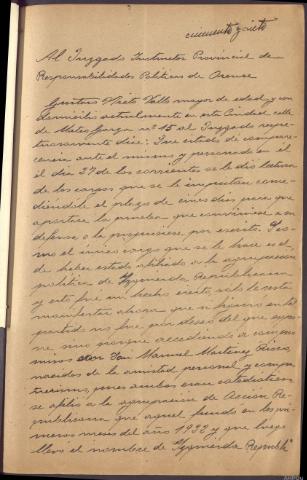 cincuenta y siete
Al Juzgado Instructor Provincial de
Responsabilidades Politicas de Orense
Prieto Valle mayor de edad y con
domicilio actualmente en esta Ciudad calle
de nº 15 al Juzgado respe-
tuosamente dice: Que citado de compare-
cencia ante el mismo y personado en él
el dia 27 de los corrientes se le dio lectura
de los cargos que se le imputan conce-
diendole el plazo de cinco dias para que
aportara la prueba que conviniera a su
defensa o la propusiera por escrito.
mo el único cargo que se le hace es el
de haber estado afiliado a la agrupacion
politica de Izquierda Republicana
y este fue un hecho cierto, solo le resta
manifestar ahora que si figuró en tal
partido no fue por deseo del que expo-
ne sino porque accediendo a
Don Manuel Martinez Risco,
nacidos de la amistad personal y compa-
ñerismo, pues ambos eran catedraticos
se afilió a la agrupacion de Accion Re-
publicana que aquel fundó en los pri-
meros meses del año 1932 y que luego
llevó el nombre de "Izquierda Republi"